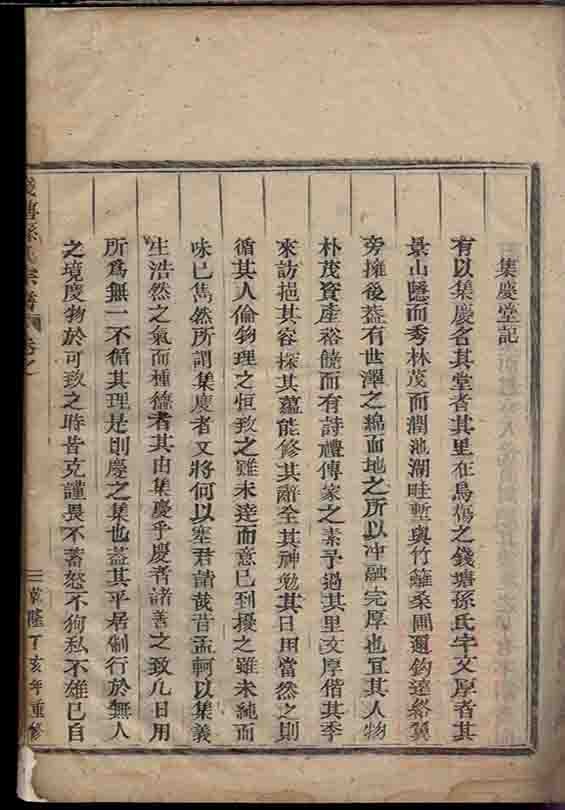 集慶堂記
有以集慶名其堂者其里在烏傷之錢塘孫氏字文厚者其
景山隱而秀林茂而潤池湖畦塹與竹籬桑圃邐鈎遠絡翼
旁擁後葢有世澤之綿而地之所以冲融完厚也宜其人物
朴茂資產裕饒而有詩禮傳家之素予過其里文厚偕其季
來訪挹其容探其蘊能修其辭全其神勉其日用當然之則
循其人倫鈞理之恒致之雖未逹而意已到擾之雖未純而
味已雋然所謂集慶者又將何以塞君請㦲昔孟軻以集義
生浩然之氣而種德者其由集慶乎慶者諸善之致凡日用
所爲無一不循其理是則慶之集也葢其平居制行於無人
之境慶物於可致之時皆克謹畏不蓄怒不狥私不雄已自
錢塘孫氏宗譜
卷之
乾隆丁亥年重修